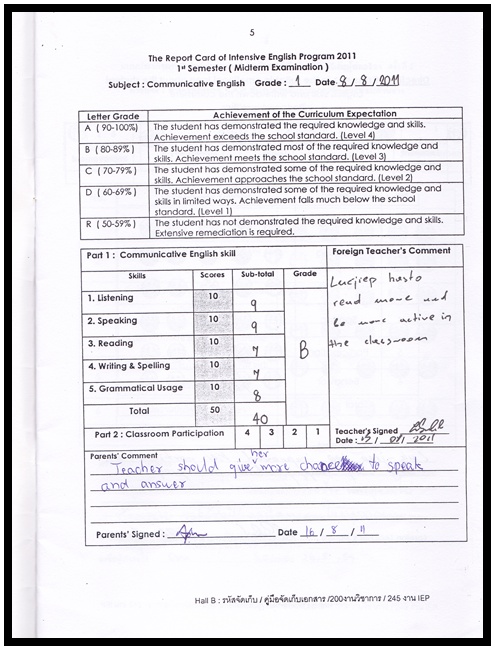 5
The Report Card of Intensive English Program 2011
1st Semester ( Midterm Examination )
Subject : Communicative English Grade : 1 Date 8 / 8 / 2011
Letter Grade Achievement of the Curriculum Expectation
A ( 90-100%) The student has demonstrated the required knowledge and skills.
Achievement exceeds the school standard. (Level 4)
B ( 80-89%) The student has demonstrated most of the required knowledge and
skills. Achievement meets the school standard. (Level 3)
C ( 70-79%) The student has demonstrated some of the required knowledge and
skills. Achievement approaches the school standard. (Level 2)
D ( 60-69%) The student has demonstrated some of the required knowledge and
skills in limited ways. Achievement falls much below the school
standard. (Level 1)
R ( 50-59%) The student has not demonstrated the required knowledge and skills.
Extensive remediation is required.
Part 1 : Communicative English skill
Skills Scores Sub-total Grade
1. Listening 10 9
2. Speaking 10 9
3. Reading 10 7
4. Writing & Spelling 10 7
5. Grammatical Usage 10 8
Total 50 40
B
Part 2 : Classroom Participation 4 3 2 1
Foreign Teacher's Comment
has to
read more and
be more active in
the classroom
Teacher's Signed
Date : / 2011
Parents' Comment
Teacher should give her more chance to speak
and answer
Parents' Signed : Date 16 / 8 / 11
Hall B : รหัสจัดเก็บ / คู่มือจัดเก็บเอกสาร /200งานวิชาการ / 245 งาน IEP